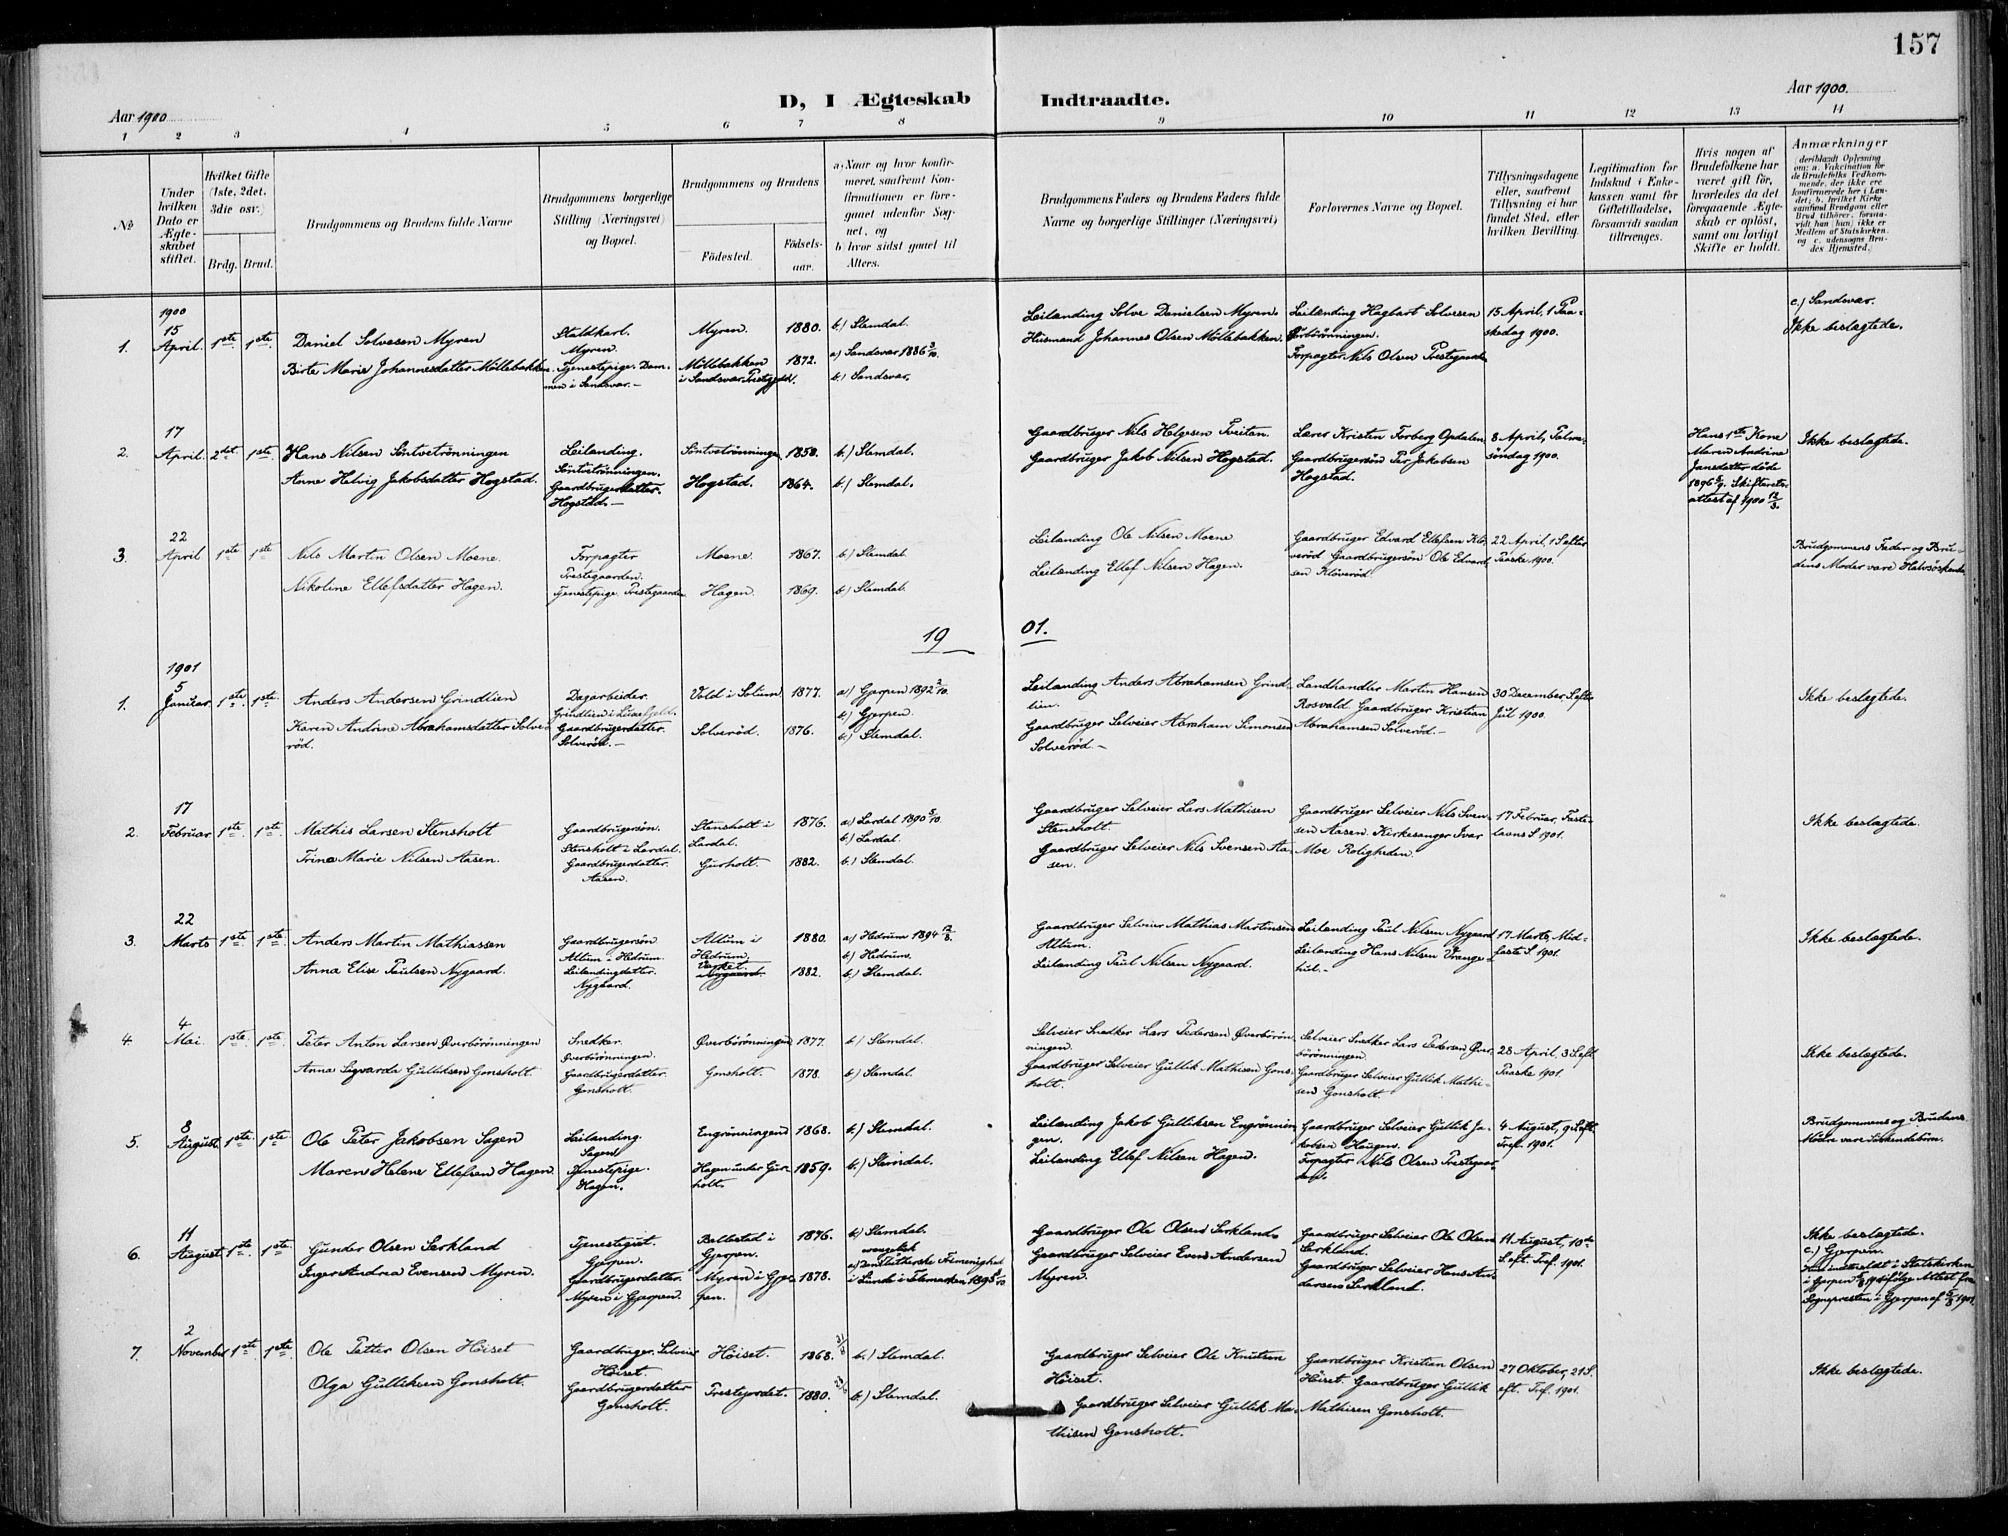 157
Aar 1900.
D, I Ægteskab Indtraadte.
Aar 1900.
1 2 3 4 5 6 7 8 9 10 11 12 13 14
№
Under hvilken Dato er Ægteskabet stiftet.
Hvilket Gifte (1ste, 2det, 3die osv.)
Brdg. Brud.
Brudgommens og Brudens fulde Navne
Brudgommens borgerlige Stilling (Næringsvei) og Bopæl.
Brudgommens og Brudens
Födested.
Födsels-aar.
a) Naar og hvor konfirmeret, saafremt Konfirmationen er foregaaet udenfor Sognet, og
b) hvor sidst gaaet til Alters.
Brudgommens Faders og Brudens Faders fulde Navne og borgerlige Stillinger (Næringsvei)
Forlovernes Navne og Bopæl.
Tillysningsdagene eller, saafremt Tillysning ei har fundet Sted, efter hvilken Bevilling.
Legitimation for Indskud i Enkekassen samt for Giftetilladelse, forsaavidt saadan tiltrænges.
Hvis nogen af Brudefolkene har været gift för, hvorledes da det foregaaende Ægteskab er oplöst, samt om lovligt Skifte er holdt.
Anmærkninger (deriblandt Oplysning om: a. Vakcination for de Brudefolks Vedkommende, der ikke ere konfirmerede her i Landet; b. hvilket Kirkesamfund Brudgom eller Brud tilhörer, forsaavidt han (hun) ikke er Medlem af Statskirken, og c. udensogns Brudes Hjemsted.)
1900
1. 15 April. 1ste 1ste
Daniel Solvesen Myren
Staldkarl. Myren.
Myren. 1880. b.) Slemdal.
Leilænding Solve Danielsen Myren.
Leilænding Hagbart Solvesen
15 April, 1 Paaskedag 1900.
c.) Sandsvær.
Ikke beslægtede.
Birte Marie Johannesdatter Möllebakken.
Tjenestepige. Dammen i Sandsvær.-
Möllebakken i Sandsvær Prestegjeld. 1872.
a) Sandsvær 1886 3/10.
b.) Sandsvær.
Husmand Johannes Olsen Möllebakken.
Forpagter Nils Olsen Prestegaarden
2. 17 April. 2det. 1ste.
Hans Nilsen Söntvetrönningen
Leilænding. Söntvetrönningen.
Söntvetrönningen 1850. b.) Slemdal.
Gaardbruger Nils Helgesen Tveitan.
Lærer Kristen Forberg Opdalen
8 April, Palmesöndag 1900.
Hans 1ste Kone Maren Andrine Jansdatter döde 1896 5/9. Skifteretsattest af 1900 12/3.
Ikke beslægtede.
Anne Helvig Jakobsdatter Hogstad.
Gaardbrugerdatter. Hogstad.-
Hogstad. 1864. b.) Slemdal.
Gaardbruger Jakob Nilsen Hogstad.
Gaardbrugersön Per Jakobsen Hogstad.
3. 22 April 1ste 1ste
Nils Martin Olsen Moene.
Forpagter Prestegaarden.
Moene. 1867. b.) Slemdal
Leilænding Ole Nilsen Moene
Gaardbruger Edvard Ellefsen Klöveröd Gaardbrugersön Ole Edvardsen Klöveröd.
22 April, 1 S eftr Paaske 1900.
Brudgommens Fader og Brudens Moder vare Halvsöskende.
Nikoline Ellefsdatter Hagen.
Tjenestepige. Prestegaarden
Hagen. 1869. b.) Slemdal.
Leilænding Ellef Nilsen Hagen.
19 01.
1901
1. 5 Januar. 1ste. 1ste.
Anders Andersen Grindlien
Dagarbeider. Grindlien i Luxefjeld.
Vold i Solum 1877.
a) Gjerpen 1892 2/10.
b.) Gjerpen.
Leilænding Anders Abrahamsen Grindlien.
Landhandler Martin Hansen Rosvald. Gaardbruger Kristian Abrahamsen Solveröd.-
30 December, S eftr Jul 1900.
Ikke beslægtede.
Karen Andrine Abrahamsdatter Solveröd.
Gaardbrugerdatter. Solveröd.-
Solveröd. 1876. b.) Slemdal.
Gaardbruger Selveier Abraham Simonsen Solveröd.-
2. 17 Februar 1ste. 1ste.
Mathis Larsen Stensholt
Gaardbrugersön. Stensholt i Lardal.
Stensholt i Lardal. 1876.
a.) Lardal 1890 5/10.
b.) Lardal.
Gaardbruger Selveier Lars Mathisen Stensholt.
Gaardbruger Selveier Nils Svensen Aasen. Kirkesanger Ivar Moe Roligheden.
17 Februar, Fastelavns S. 1901.
Ikke beslægtede.
Trine Marie Nilsen Aasen.
Gaardbrugerdatter. Aasen.
Gurholt. 1882. b.) Slemdal.
Gaardbruger Selveier Nils Svensen Aasen.
3. 22 Marts 1ste. 1ste.
Anders Martin Mathiassen
Gaardbrugersön Allum i Hedrum.
Allum i Hedrum. 1880.
a.) Hedrum 1894
b.) Hedrum.
Gaardbruger Selveier Mathias Martinsen Allum.
Leilænding Paul Nilsen Nygaard Leilænding Hans Nilsen Vrangehul.-
17 Marts, Midfaste S. 1901.
Ikke beslægtede.
Anna Elise Paulsen Nygaard.
Leilændingdatter. Nygaard.
Værket. Nygaard. 1882. b.) Slemdal.
Leilænding Paul Nilsen Nygaard.
4. 4 Mai. 1ste. 1ste.
Peter Anton Larsen Øverbörönningen
Snedker. Øverbörönningen.
Øverbörönningen 1877. b.) Slemdal.
Selveier Snedker Lars Pedersen Øverbörönningen.
Selveier Snedker Lars Pedersen Øverbörönningen
28 April, 3 S eft. Paaske 1901.
Ikke beslægtede.
Anna Sigvarda Gulliksen Gonsholt.
Gaardbrugerdatter. Gonsholt.
Gonsholt. 1878. b.) Slemdal.
Gaardbruger Selveier Gullik Mathisen Gonsholt.
Gaardbruger Selveier Gullik Mathisen Gonsholt.
5. 8 August. 1ste. 1ste.
Ole Peter Jakobsen Sagen
Leilænding. Sagen.
Engrönningen 1868. b.) Slemdal.
Leilænding Jakob Gulliksen Engrönningen.
Gaardbruger Selveier Gullik Jakobsen Haugen.
4 August, 9 S eft. Tref. 1901.
Brudgommens og Brudens Mödre vare Söskendebörn.
Maren Helene Ellefsen Hagen.
Tjenestepige. Hagen.
Hagen under Gurholt. 1859. b.) Slemdal.
Leilænding Ellef Nilsen Hagen.
Forpagter Nils Olsen Prestegaarden.
6. 11 August. 1ste. 1ste.
Gunder Olsen Serkland
Tjenestegut. Gjerpen.
Bollestad i Gjerpen. 1876. b.) Slemdal.
Gaardbruger Ole Olsen Serkland.
Gaardbruger Selveier Ole Olsen Serkland.
11 August, 10de S. eft. Tref. 1901.
Ikke beslægtede.
c.) Gjerpen.
Hun indmeldt i Statskirken i Gjerpen 1901 ifölge Attest fra Sognepresten i Gjerpen af 1901
Inger Andrea Evensen Myren.
Gaardbrugerdatter. Myren i Gjerpen.
Myren i Gjerpen. 1878.
a) Den evangelisk Lutherske Frimenighed i Lunde i Telemarken 1893
Gaardbruger Selveier Even Andersen Myren.
Gaardbruger Selveier Hans Andersen Serkland.
7. 2 November 1ste 1ste.
Ole Petter Olsen Höiset
Gaardbruger. Selveier Höiset.
Höiset. 1868. b.) Slemdal.
Gaardbruger Selveier Ole Knutsen Höiset.
Gaardbruger Kristian Olsen Höiset. Gaardbruger Gullik Mathisen Gonsholt.
27 Oktober, 21 S. eft. Tref. 1901.
Ikke beslægtede.
Olga Gulliksen Gonsholt.
Gaardbrugerdatter Gonsholt.
Prestejordet. 1880. b.) Slemdal.
Gaardbruger Selveier Gullik Mathisen Gonsholt.